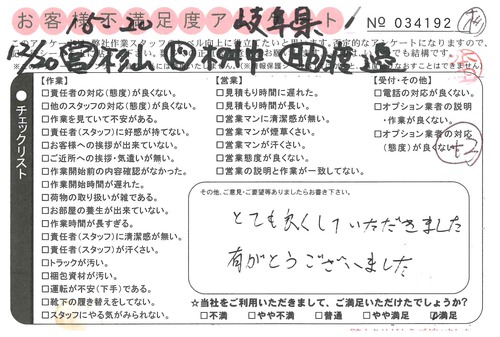 お客様不満足度アンケート
岐阜県
No 034192
チェックリスト
【作業】
□責任者の対応(態度)が良くない。
□他のスタッフの対応(態度)が良くない。
□作業を見ていて不安がある。
□責任者(スタッフ)に好感が持てない。
□お客様への挨拶が出来ていない。
□ご近所への挨拶・気遣いが無い。
□作業開始前の内容確認がなかった。
□作業開始時間が遅れた。
□荷物の取り扱いが雑である。
□お部屋の養生が出来ていない。
□作業時間が長すぎる。
□責任者(スタッフ)に清潔感が無い。
□責任者(スタッフ)が汗くさい。
□トラックが汚い。
□梱包資材が汚い。
□運転が不安(下手)である。
□靴下の履き替えをしてない。
□スタッフにやる気がみられない。
【営業】
□見積もり時間に遅れた。
□見積もり時間が長い。
□営業マンに清潔感が無い。
□営業マンが煙草くさい。
□営業マンが汗くさい。
□営業態度が良くない。
□営業の説明と作業が一致してない。
【受付・その他】
□電話の対応が良くない。
□オプション業者の説明
・作業が良くない。
□オプション業者の対応
(態度)が良くない。
その他、ご意見・ご要望等ありましたらお書き下さい。
とても良くしていただきました
有がとうございました
☆当社をご利用いただきまして、ご満足いただけてでしょうか?
□不満 □やや不満 □普通 □やや満足 ☑満足